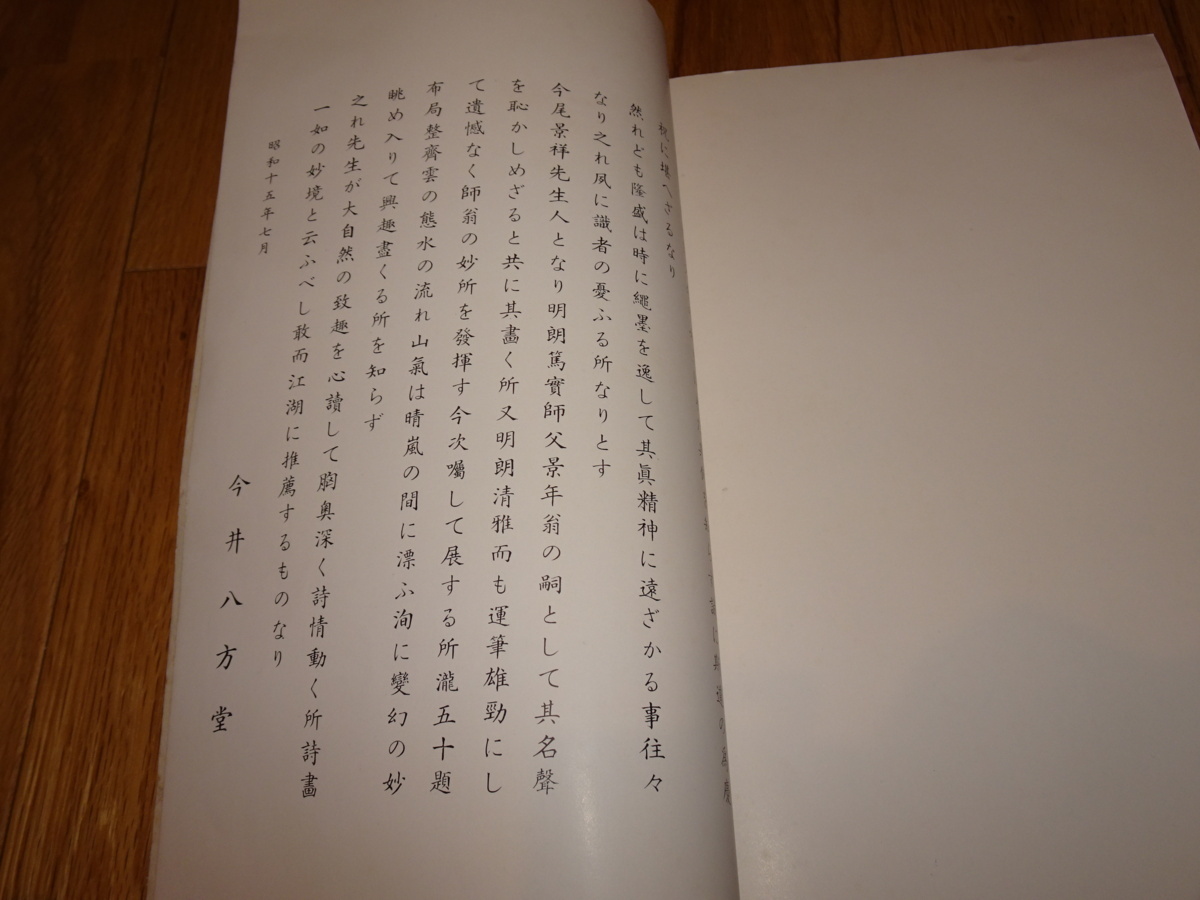 に堪へざるなり
然れども隆盛は時に繩墨を逸して其眞精神に遠ざかる事往々
なり之れ夙に識者の憂ふる所なりとす
今尾景祥先生人となり明朗篤實師父景年翁の嗣として其名聲
を恥かしめざると共に其畵く所又明朗清雅而も運筆雄勁にし
て遺憾なく師翁の妙所を發揮す今次囑して展する所瀧五十題
布局整齊雲の態水の流れ山氣は晴嵐の間に漂ふ洵に變幻の妙
眺め入りて興趣盡くる所を知らず
之れ先生が大自然の致趣を心讀して胸奥深く詩情動く所詩畵
一如の妙境と云ふべし敢而江湖に推薦するものなり
昭和十五年七月
今井八方堂